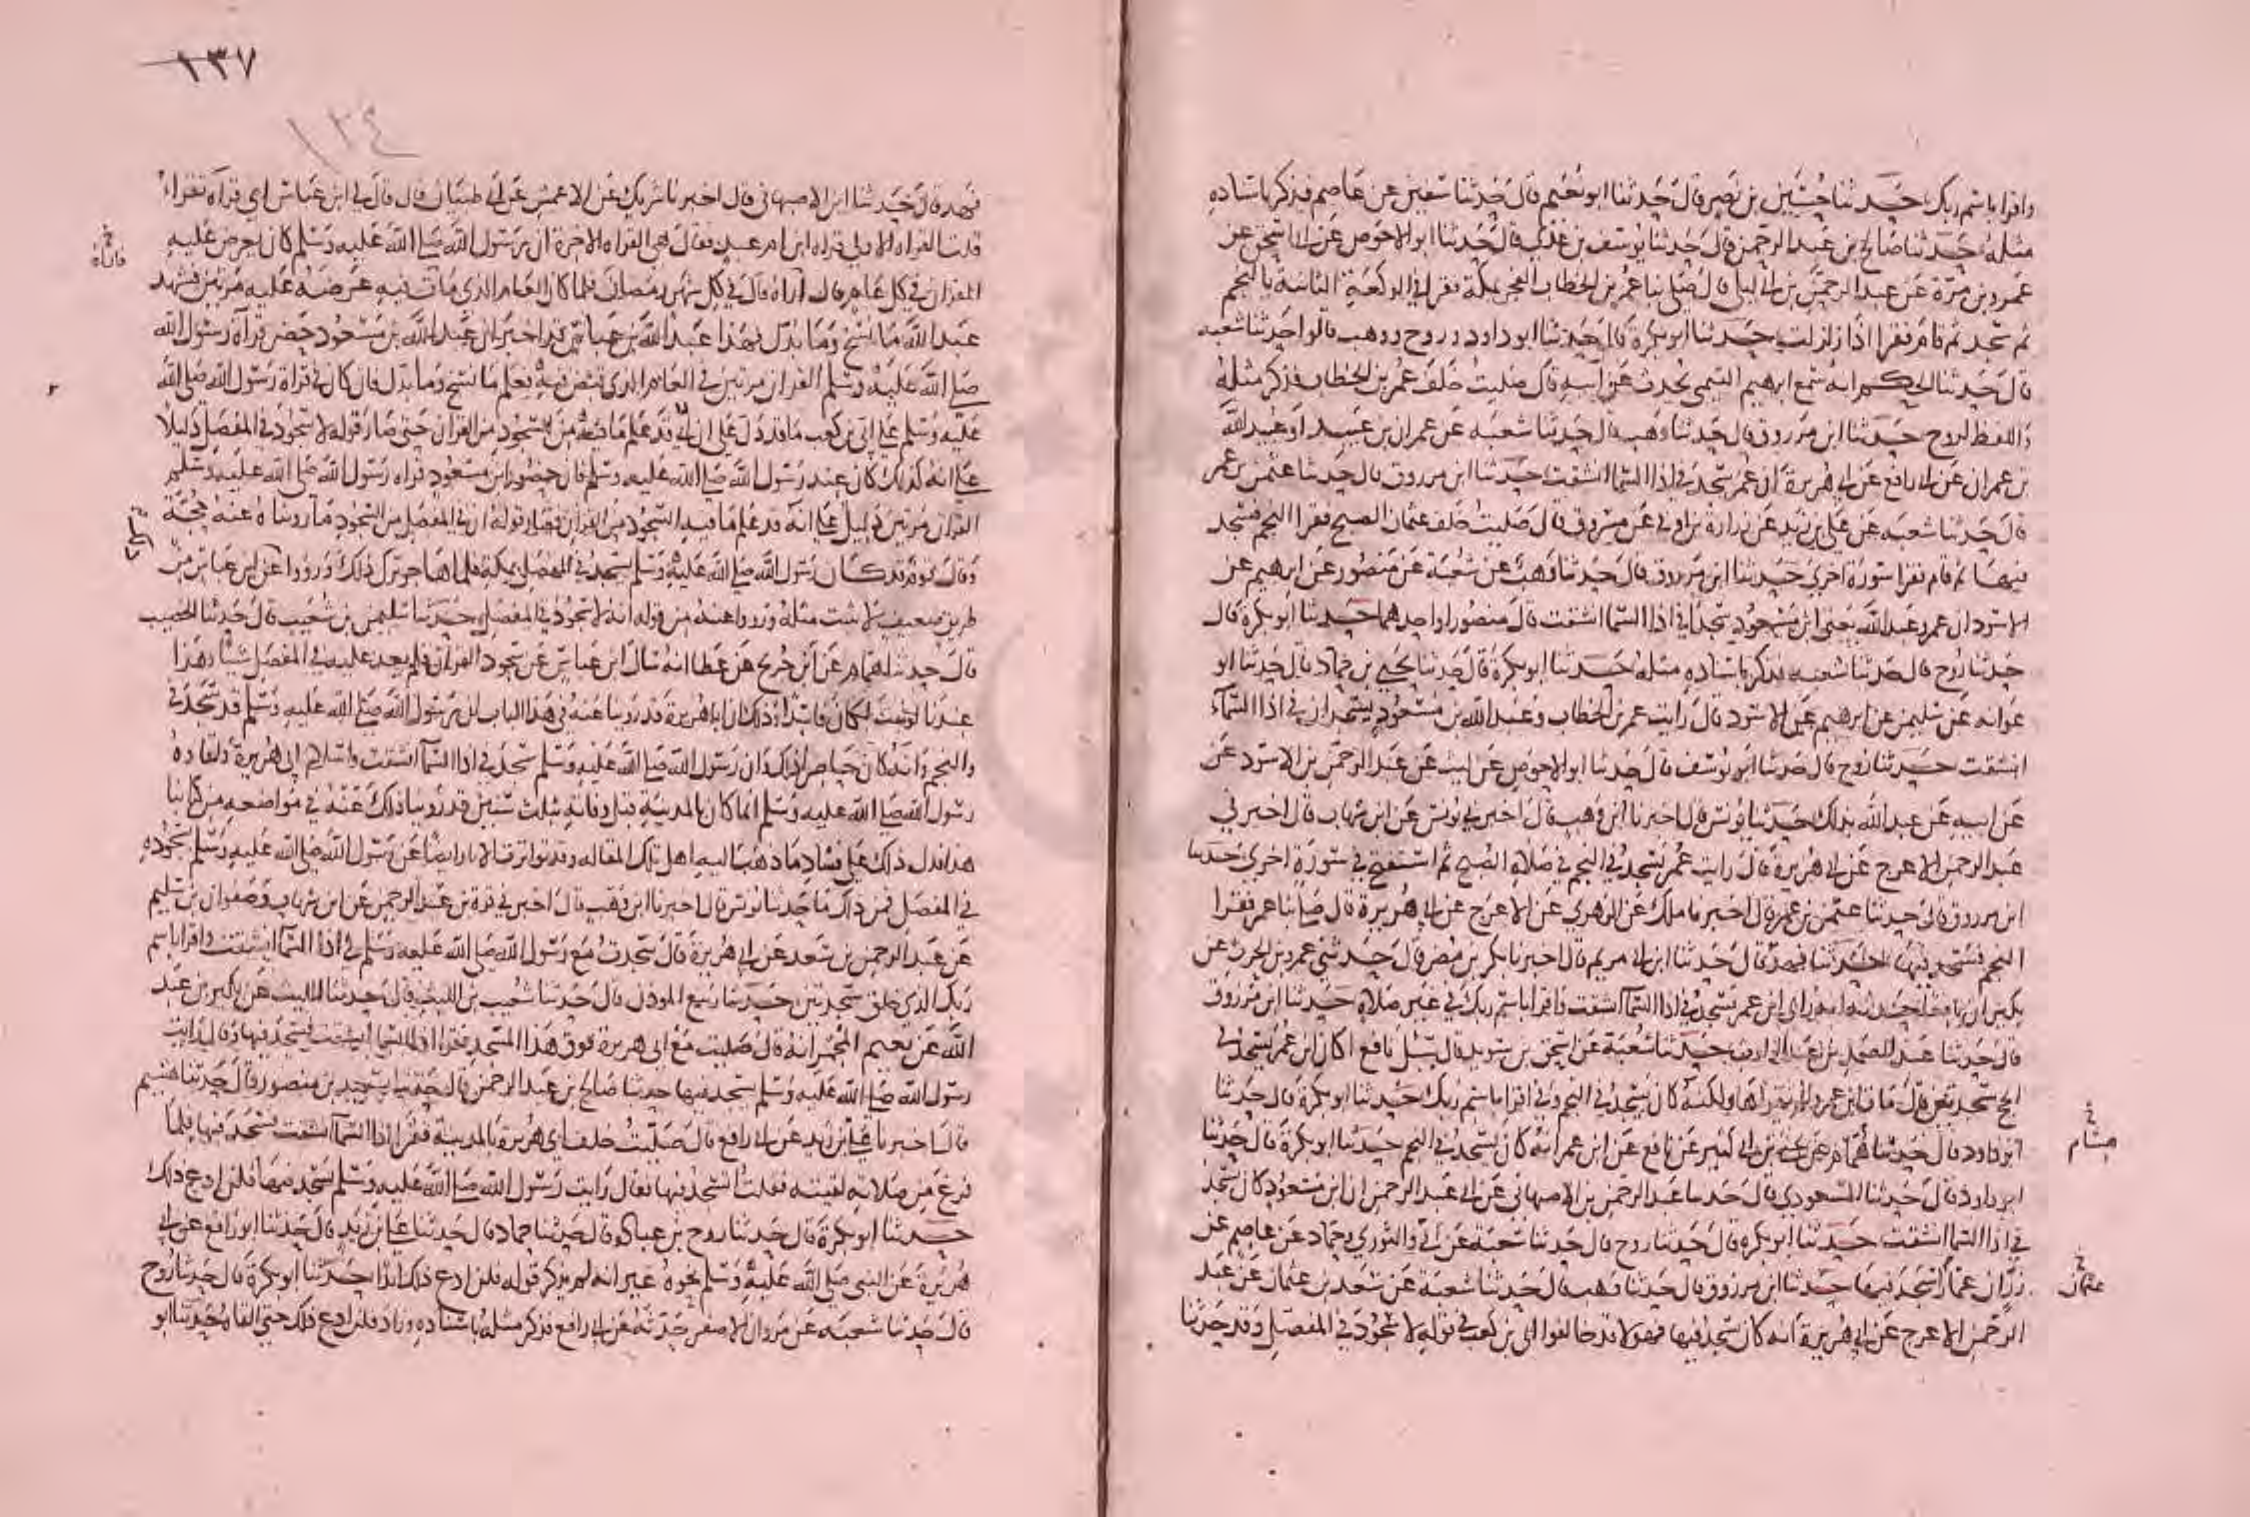 واقرا باسم ربك حدثنا حسين بن نصر قال حدثنا ابو نعيم قال حدثنا سفين عن عاصم فذكر باسناده
مثله حدثنا صالح بن عبد الرحمن قال حدثنا يوسف بن عدي قال حدثنا ابو الاحوص عن ابي اسحق عن
عمرو بن مرة عن عبد الرحمن بن ابي ليلى قال صلى بنا عمر بن الخطاب الفجر بمكة فقرا في الركعة الثانية بالنجم
ثم سجد ثم قام فقرا اذا زلزلت حدثنا ابو بكرة قال حدثنا ابو داود وروح ووهب قالوا حدثنا شعبه
قال حدثنا الحكم انه سمع ابرهيم التيمي يحدث عن ابيه قال صليت خلف عمر بن الخطاب فذكر مثله
واللفظ لروح حدثنا ابن مرزوق قال حدثنا وهب قال حدثنا شعبه عن عمران بن عبيد او عبيد الله
بن عمران عن ابي رافع عن ابي هريرة ان عمر سجد في اذا السما انشقت حدثنا ابن مرزوق قال حدثنا عثمن بن عمر
قال حدثنا شعبه عن علي بن زيد عن زرارة بن اوفى عن مسروق قال صليت خلف عثمان الصبح فقرا النجم فسجد
فيها ثم قام فقرا سورة اخرى حدثنا ابن مرزوق قال حدثنا وهب عن شعبة عن منصور عن ابرهيم عن
الاسود ان عمر وعبد الله يعني ابن مسعود سجدا في اذا السما انشقت قال منصور او احدهما حدثنا ابو بكرة قال
حدثنا روح قال حدثنا شعبه فذكر باسناده مثله حدثنا ابو بكرة قال حدثنا يحيى بن حماد قال حدثنا ابو
عوانه عن سليمن عن ابرهيم عن الاسود قال رايت عمر بن الخطاب وعبد الله بن مسعود يسجدان في اذا السماء
انشقت حدثنا روح قال حدثنا ابو يوسف قال حدثنا ابو الاحوص عن ليث عن عبد الرحمن بن الاسود عن
عن ابيه عن عبد الله بذلك حدثنا يونس قال اخبرنا ابن وهب قال اخبرني يونس عن ابن شهاب قال اخبرني
عبد الرحمن الاعرج عن ابي هريرة قال رايت عمر سجد في النجم في صلاة الصبح ثم استفتح في سورة اخرى حدثنا
ابن مرزوق قال حدثنا عثمن بن عمر قال اخبرنا ملك عن الزهري عن الاعرج عن ابي هريرة قال صلى بنا عمر فقرا
النجم فسجد فيها حدثنا فهد قال حدثنا ابن ابي مريم قال اخبرنا بكر بن مضر قال حدثني عمرو بن الحرث عن
بكير ان نافعا حدثه انه راى ابن عمر يسجد في اذا السما انشقت واقرا باسم ربك في غير صلاة حدثنا ابن مرزوق
قال حدثنا عبد الصمد بن عبد الوارث حدثنا شعبة عن اسحق بن سويد قال سئل نافع اكان ابن عمر يسجد في
الحج سجدتين قال مات ابن عمر ولم يقراها ولكنه كان يسجد في النجم وفي اقرا باسم ربك حدثنا ابو بكرة قال حدثنا
ابو داود قال حدثنا همام عن يحيى بن ابي كثير عن نافع عن ابن عمر انه كان يسجد في النجم حدثنا ابو بكرة قال حدثنا
هشام
ابو داود قال حدثنا المسعودي قال حدثنا عبد الرحمن بن الاصبهاني عن ابي عبد الرحمن ان ابن مسعود كان سجد
في اذا السما انشقت حدثنا ابو بكرة قال حدثنا روح قال حدثنا شعبة والثوري وحماد عن عاصم عن
زر ان عمارا سجد فيها حدثنا ابن مرزوق قال حدثنا وهب قال حدثنا شعبة عن سعد بن عثمان عن عبد
عثمان
الرحمن الاعرج عن ابي هريرة انه كان سجد فيها فهولا قد خالفوا ابي بن كعب في قوله لا سجود في المفصل وقد حدثنا
١٣٧
١٣٤
فهد قال حدثنا ابن الاصبهاني قال اخبرنا شريك عن الاعمش عن ابي ظبيان قال قال لي ابن عباس اي قراة تقراء
قلت القراه الاولى قراه ابن ام عبد فقال هي القراه الاخرة ان رسول الله صلى الله عليه وسلم كان يعرض عليه
القران في كل عام قال اراه قال في كل شهر رمضان فلما كان العام الذي مات فيه عرضه عليه مرتين فشهد
عبد الله ما نسخ وما بدل فهذا عبد الله بن عباس قد اخبر ان عبد الله بن مسعود حضر قراة رسول الله
صلى الله عليه وسلم القران مرتين في العام الذي قبض فيه فعلم ما نسخ وما بدل فان كان في قراة رسول الله صلى الله
عليه وسلم على ابي بن كعب ما قد دل على ان ابي قد علم ما فيه من السجود من القران حتى صار قوله لا سجود في المفصل دليلا
على انه كذلك كان عند رسول الله صلى الله عليه وسلم فان حضور ابن مسعود قراه رسول الله صلى الله عليه وسلم
القران مرتين دليل على انه قد علم ما فيه السجود من القران فصار قوله ان في المفصل من السجود ما رويناه عنه حجة
وقال قوم قد كان رسول الله صلى الله عليه وسلم يسجد في المفصل بمكة فلما هاجر ترك ذلك ورووا عن ابن عباس من
طريق ضعيف لا يثبت مثله ورووا عنه من قوله انه لا سجود في المفصل حدثنا سليمن بن شعيب قال حدثنا الخصيب
قال حدثنا همام عن ابن جريج عن عطا انه سال ابن عباس عن سجود القران فلم يعد عليه في المفصل شيئا وهذا
عندنا لو ثبت لكان فاسدا وذلك ان ابا هريرة قد روينا عنه في هذا الباب ان رسول الله صلى الله عليه وسلم قد سجد في
والنجم وانه كان حاضرا ذلك وان رسول الله صلى الله عليه وسلم سجد في اذا السما انشقت واسلام ابي هريرة ولقاوه
رسول الله صلى الله عليه وسلم انما كان بالمدينة قبل وفاته بثلث سنين قد روينا ذلك عنه في مواضعه من كتابنا
هذا فدل ذلك على فساد ما ذهب اليه اهل تلك المقاله وقد تواترت الاثار ايضا عن رسول الله صلى الله عليه وسلم بسجوده
في المفصل فمن ذلك ما حدثنا يونس قال اخبرنا ابن وهب قال اخبرني قرة بن عبد الرحمن عن ابن شهاب وصفوان بن سليم
عن عبد الرحمن بن سعد عن ابي هريرة قال سجدت مع رسول الله صلى الله عليه وسلم في اذا السما انشقت واقرا باسم
ربك الذي خلق سجدتين حدثنا ربيع الموذن قال حدثنا شعيب بن الليث قال حدثنا الليث عن بكير بن عبد
الله عن نعيم المجمر انه قال صليت مع ابي هريرة فوق هذا المسجد فقرا اذا السما انشقت فسجد فيها وقال رايت
رسول الله صلى الله عليه وسلم سجد فيها حدثنا صالح بن عبد الرحمن قال حدثنا سعيد بن منصور قال حدثنا هشيم
قال اخبرنا علي بن زيد عن ابي رافع قال صليت خلف ابي هريرة بالمدينة فقرا اذا السما انشقت فسجد فيها فلما
فرغ من صلاته لقيته فقلت اتسجد فيها فقال رايت رسول الله صلى الله عليه وسلم سجد فيها فلن ادع ذلك
حدثنا ابو بكرة قال حدثنا روح بن عبادة قال حدثنا حماد قال حدثنا علي بن زيد قال حدثنا ابو رافع عن ابي
هريرة عن النبي صلى الله عليه وسلم نحوه غير انه لم يذكر قوله فلن ادع ذلك ابدا حدثنا ابو بكرة قال حدثنا روح
قال حدثنا شعبه عن مروان الاصفر حدثه عن ابي رافع فذكر مثله باسناده وزاد فلن ادع ذلك حتى القاه حدثنا ابو